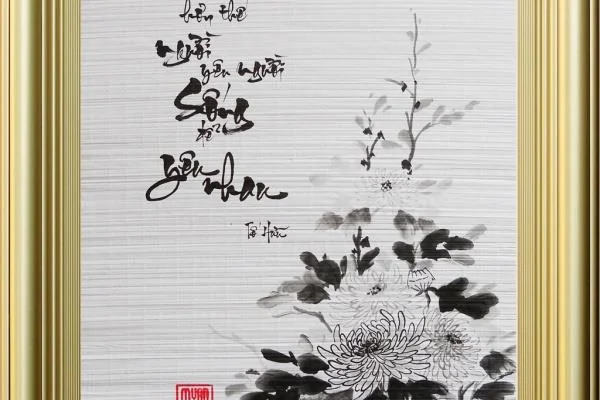 hơn thế
người
yêu người
Sống
để
yêu nhau
Tố Hữu